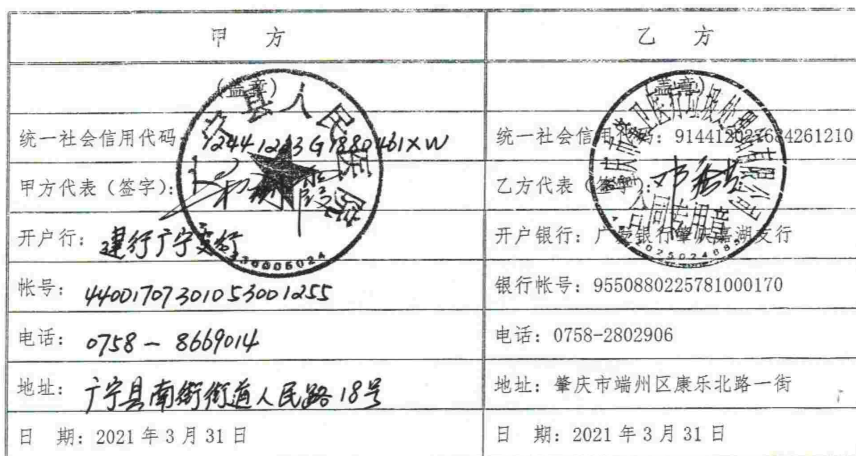 甲 方
乙 方
(盖章)
(盖章)
广宁县人民医院
统一社会信用代码：12441223G1880461XW
统一社会信用代码：914412027684261210
甲方代表（签字）：
乙方代表（签字）：
合同专用章
开户行：建行广宁支行
开户银行：广发银行肇庆嘉湖支行
帐号：44001707301053001255
银行帐号：9550880225781000170
电话：0758-8669014
电话：0758-2802906
地址：广宁县南街街道人民路18号
地址：肇庆市端州区康乐北路一街
日 期：2021年3月31日
日 期：2021年3月31日